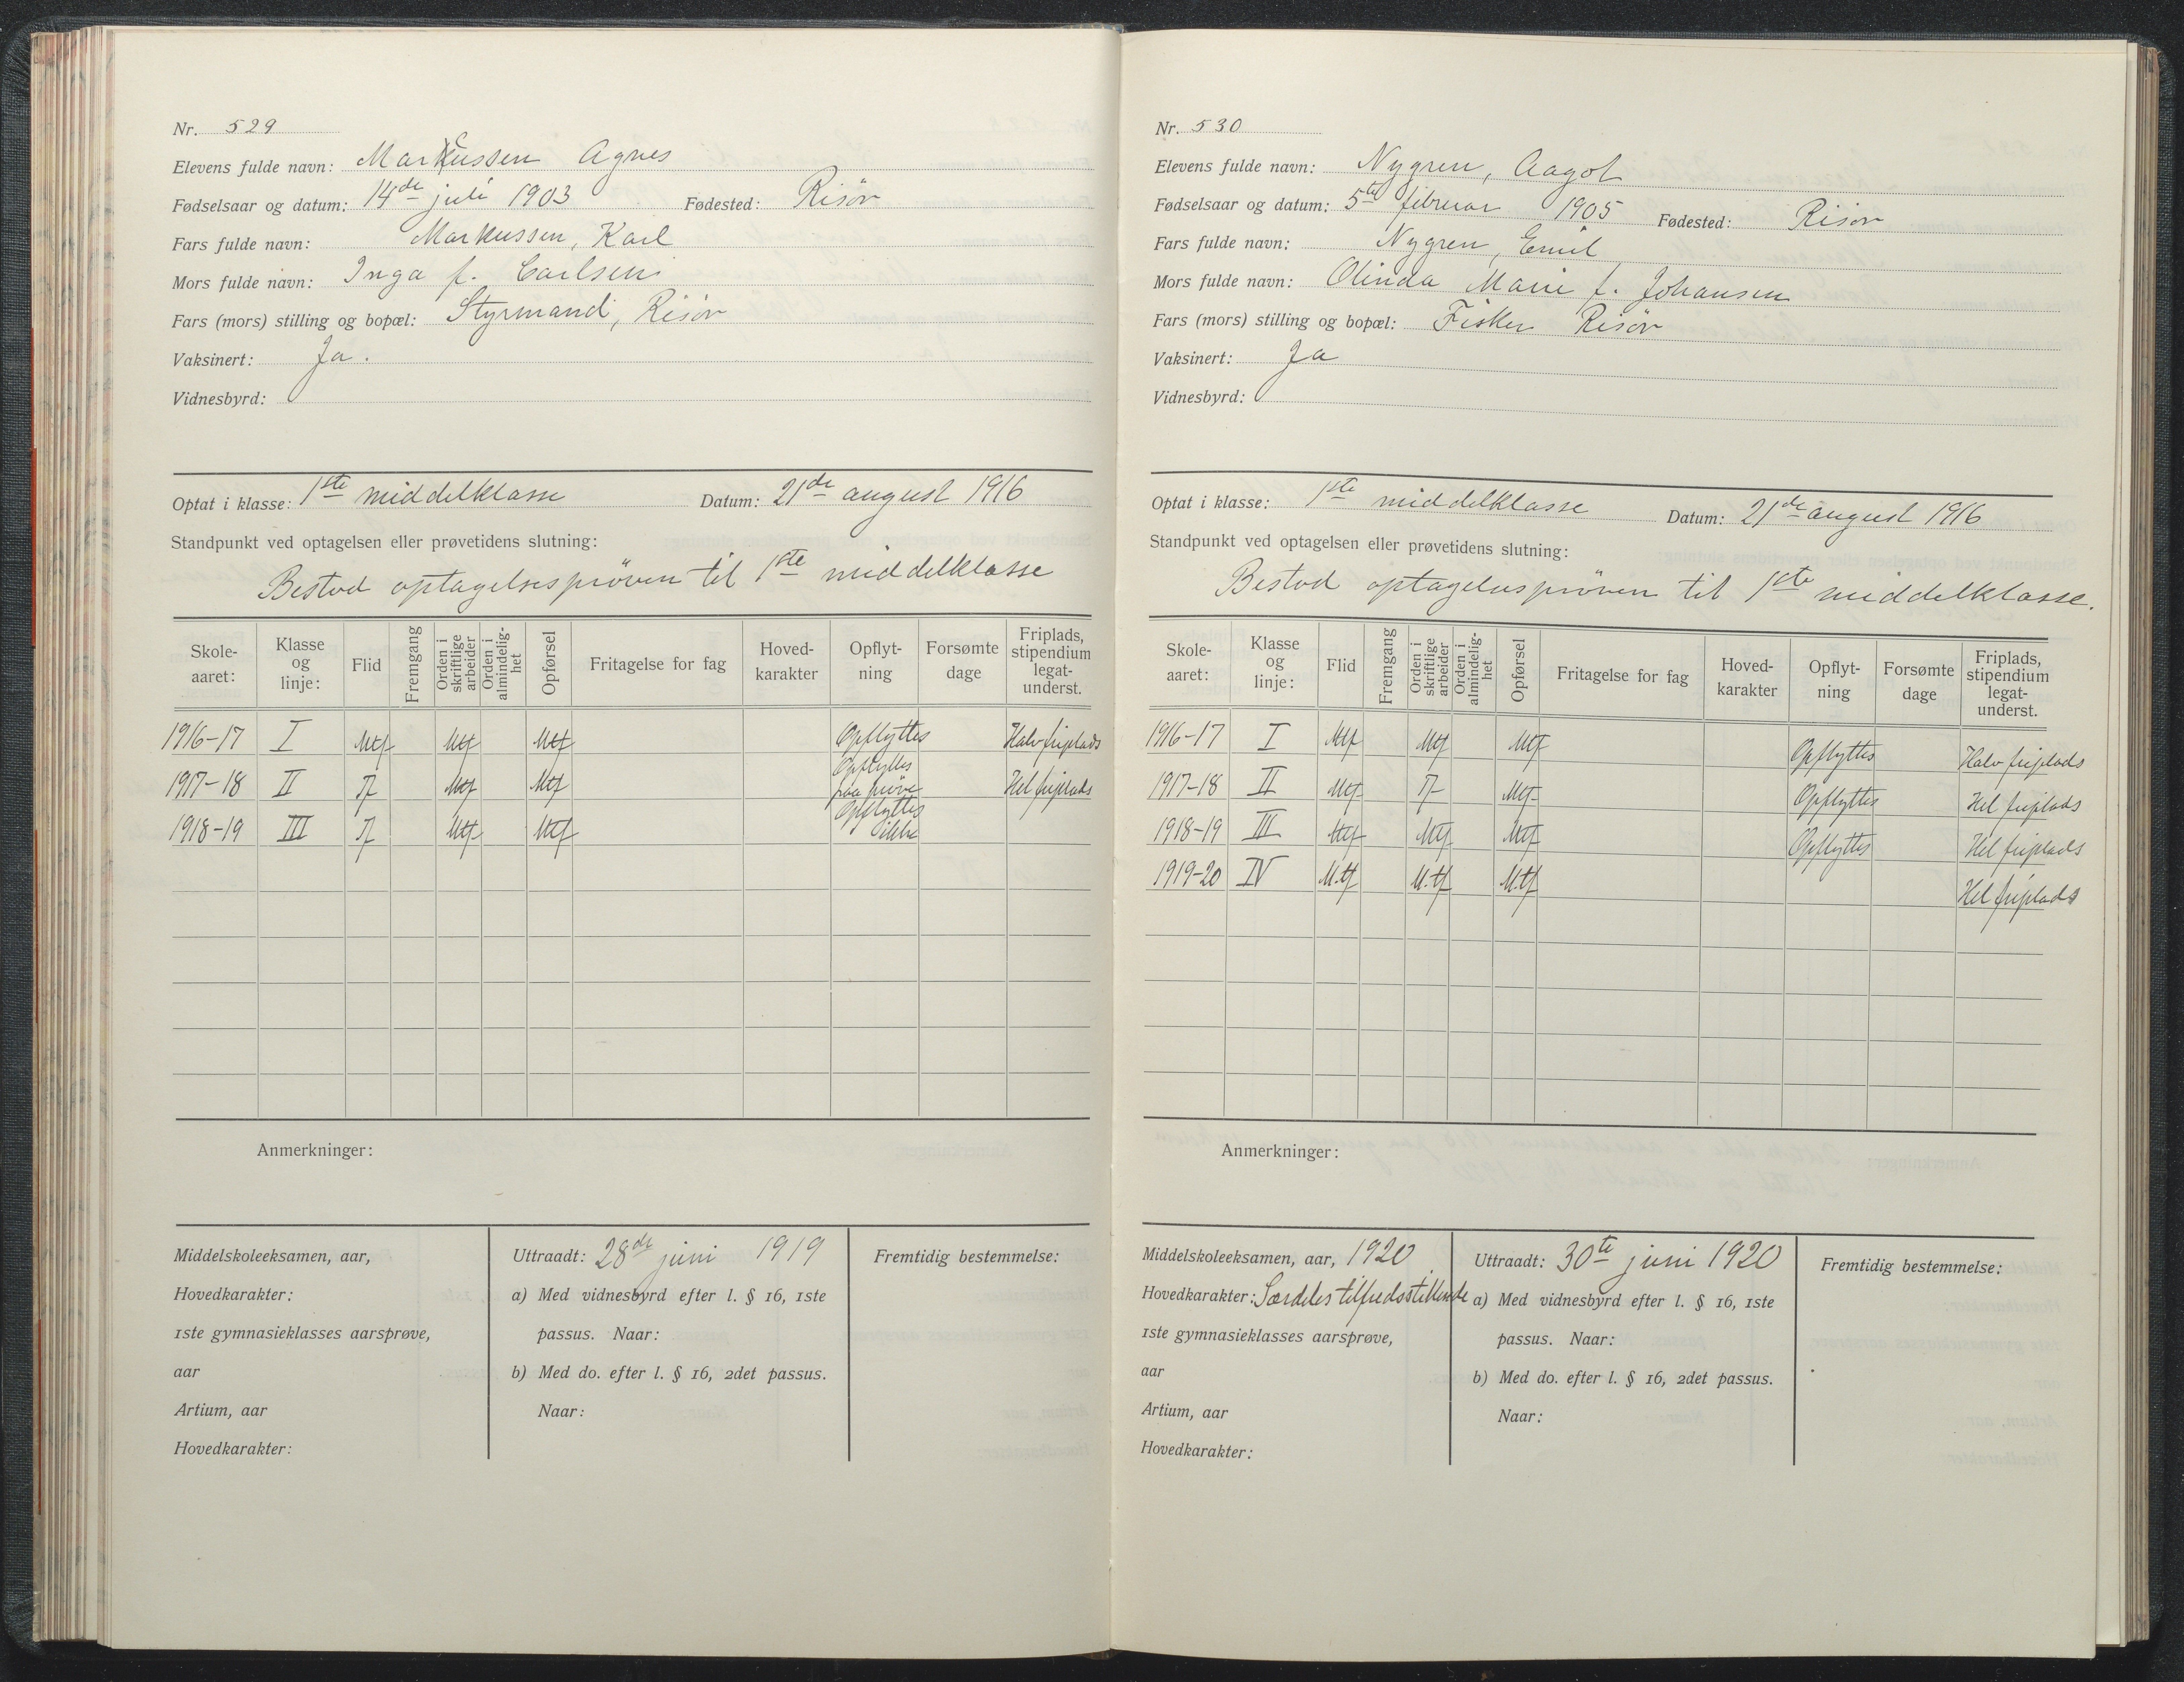 Nr. 529
Elevens fulde navn: Markussen Agnes
Fødselsaar og datum: 14de juli 1903 Fødested: Risör
Fars fulde navn: Markussen, Karl
Mors fulde navn: Inga f. Carlsen
Fars (mors) stilling og bopæl: Styrmand, Risör
Vaksinert: Ja.
Vidnesbyrd:
Optat i klasse: 1ste middelklasse Datum: 21de august 1916
Standpunkt ved optagelsen eller prøvetidens slutning:
Bestod optagelsespröven til 1ste middelklasse
Skole-aaret: Klasse og linje: Flid Fremgang Orden i skriftlige arbeider Orden i almindelig-het Opførsel Fritagelse for fag Hoved-karakter Opflyt-ning Forsømte dage Friplads, stipendium legat-underst.
1916-17 I Mtf Mtf Mtf Opflyttes Halv friplads
1917-18 II Tf Mtf Mtf Opflyttes paa pröve Hel friplads
1918-19 III Tf Mtf Mtf Opflyttes ikke
Anmerkninger:
Middelskoleeksamen, aar,
Hovedkarakter:
1ste gymnasieklasses aarsprøve,
aar
Artium, aar
Hovedkarakter:
Uttraadt: 28de juni 1919
a) Med vidnesbyrd efter l. § 16, 1ste
passus. Naar:
b) Med do. efter l. § 16, 2det passus.
Naar:
Fremtidig bestemmelse:
Nr. 530
Elevens fulde navn: Nygren, Aagot
Fødselsaar og datum: 5te februar 1905 Fødested: Risör
Fars fulde navn: Nygren, Emil
Mors fulde navn: Olinda Marie f. Johansen
Fars (mors) stilling og bopæl: Fisker Risör
Vaksinert: Ja
Vidnesbyrd:
Optat i klasse: 1ste middelklasse Datum: 21de august 1916
Standpunkt ved optagelsen eller prøvetidens slutning:
Bestod optagelsespröven til 1ste middelklasse.
Skole-aaret: Klasse og linje: Flid Fremgang Orden i skriftlige arbeider Orden i almindelig-het Opførsel Fritagelse for fag Hoved-karakter Opflyt-ning Forsømte dage Friplads, stipendium legat-underst.
1916-17 I Mtf Mtf Mtf Opflyttes Halv friplads
1917-18 II Mtf Tf Mtf Opflyttes Hel friplads
1918-19 III Mtf Mtf Mtf Opflyttes Hel friplads
1919-20 IV M.tf M.tf M.tf Hel friplads
Anmerkninger:
Middelskoleeksamen, aar, 1920
Hovedkarakter: Særdeles tilfredsstillende
1ste gymnasieklasses aarsprøve,
aar
Artium, aar
Hovedkarakter:
Uttraadt: 30te juni 1920
a) Med vidnesbyrd efter l. § 16, 1ste
passus. Naar:
b) Med do. efter l. § 16, 2det passus.
Naar:
Fremtidig bestemmelse: